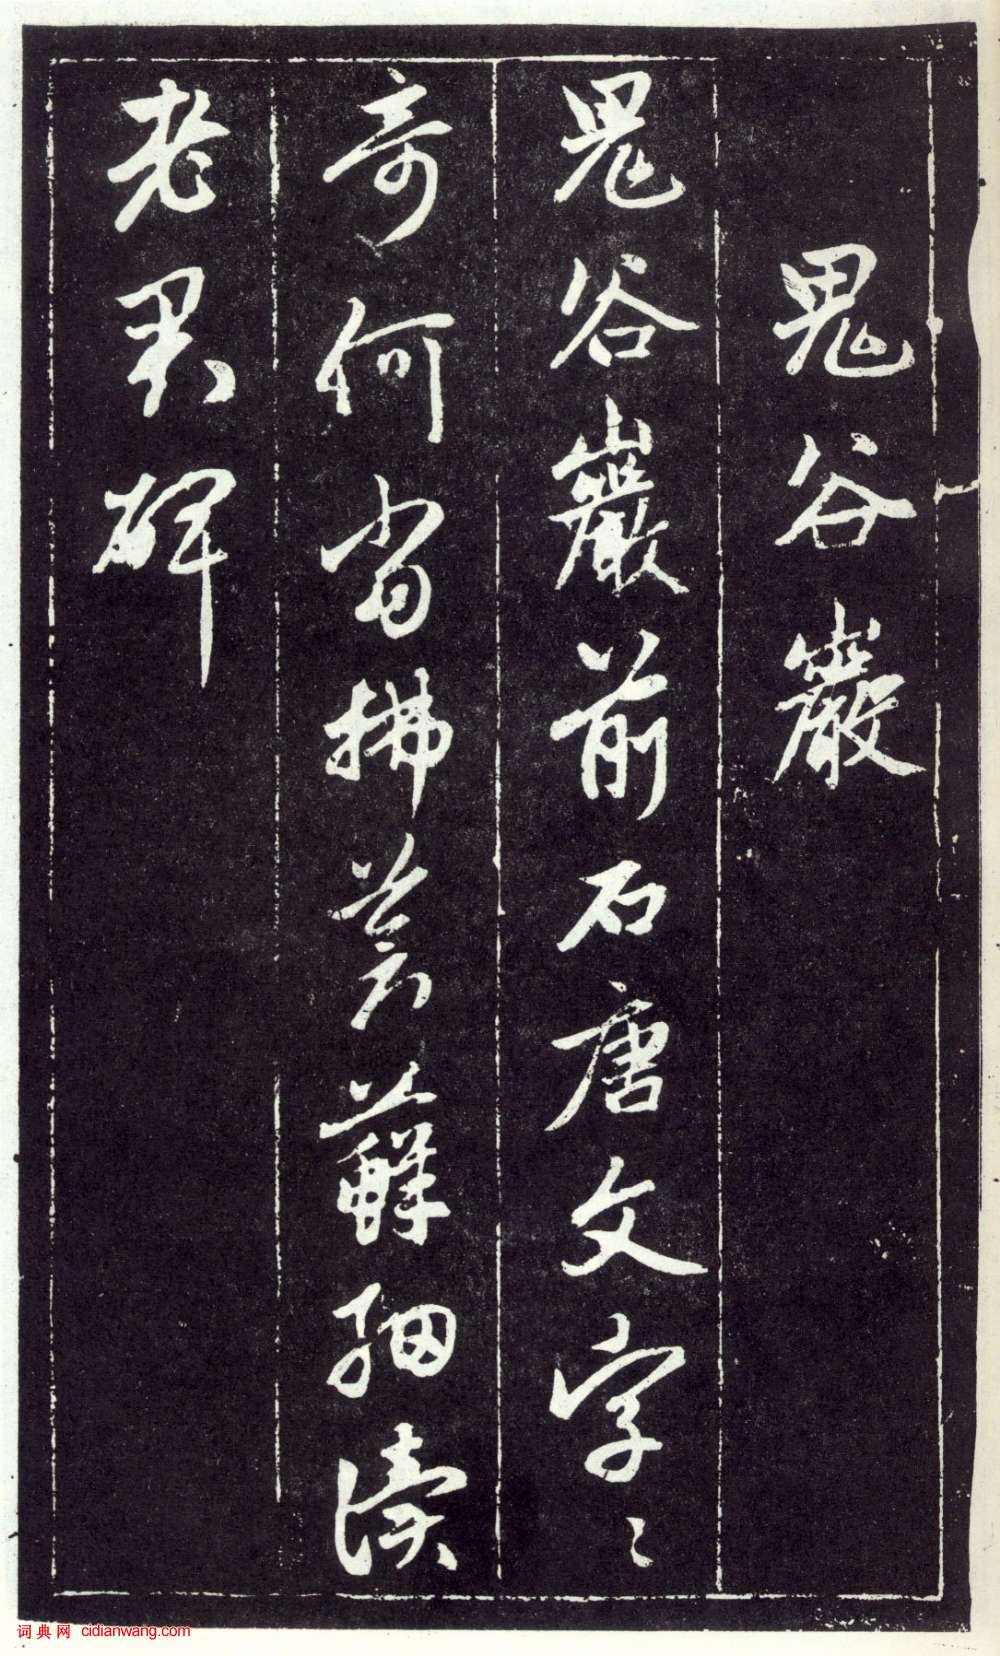 鬼谷巖
鬼谷巖前石唐文字〻
奇何當拂蒼蘚細讀
老君碑
词典网 cidianwang.com